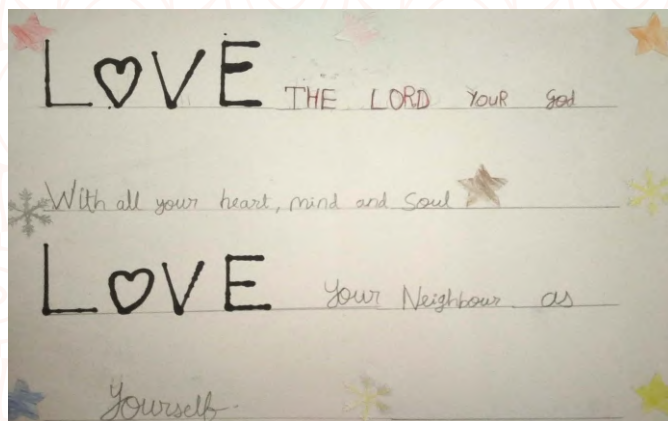 LOVE THE LORD YOUR God
With all your heart, mind and Soul
LOVE Your Neighbour as
Yourself.